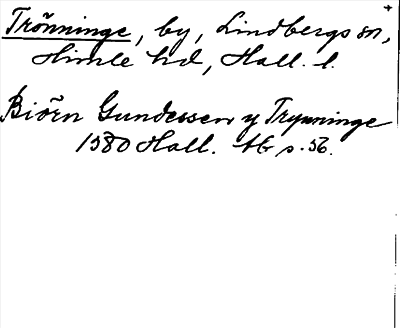 Trönninge, by, Lindbergs sn,
Himle hd, Hall. l.
Biörn Gundessen y Trynninge
1580 Hall. ÄG s. 56.